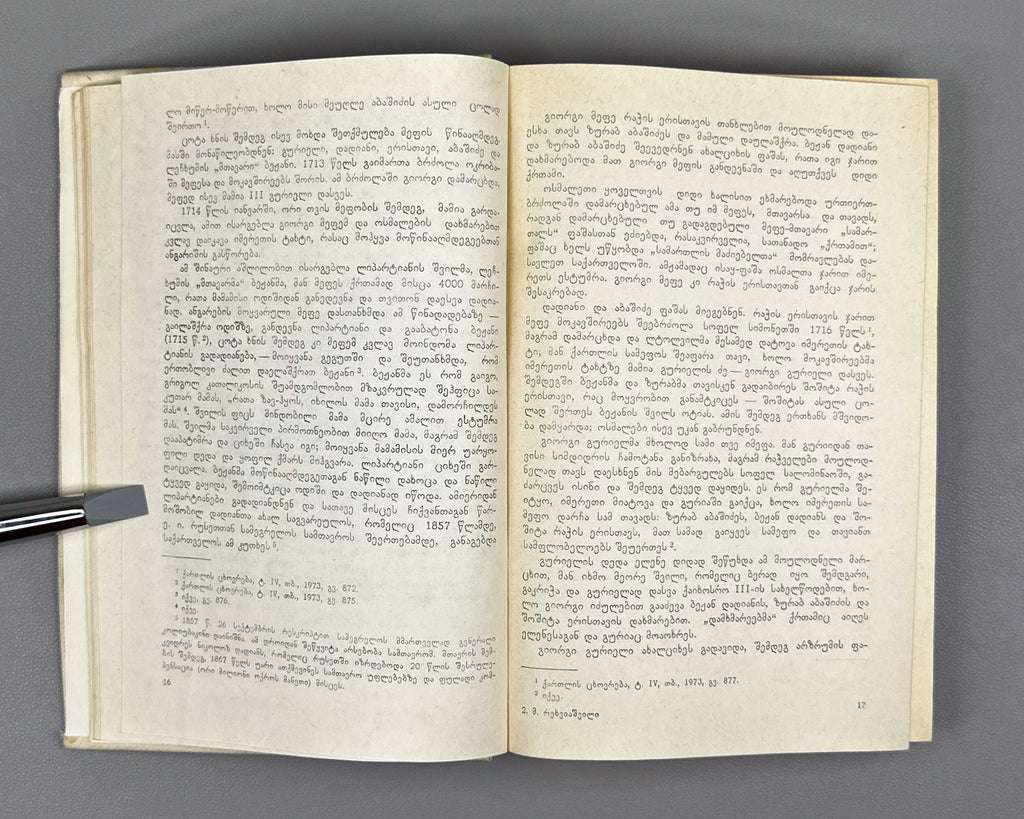 ლო მიწერ-მოწერით, ხოლო მისი მეუღლე აბაშიძის ასული ცოლად
შეირთო ¹.
ცოტა ხნის შემდეგ ისევ მოხდა შეთქმულება მეფის წინააღმდეგ.
მასში მონაწილეობდნენ: გურიელი, დადიანი, ერისთავი, აბაშიძე და
ლეჩხუმის „მთავარი“ ბეჟანი. 1713 წელს გაიმართა ბრძოლა ოკრიბა-
ში მეფესა და მოკავშირეებს შორის. ამ ბრძოლაში გიორგი დამარცხდა,
მეფედ ისევ მამია III გურიელი დასვეს.
1714 წლის იანვარში, ორი თვის მეფობის შემდეგ, მამია გარდა-
იცვლა, ამით ისარგებლა გიორგი მეფემ და ოსმალების დახმარებით
კვლავ დაიკავა იმერეთის ტახტი, რასაც მოჰყვა მოწინააღმდეგეებთან
ანგარიშის გასწორება.
ამ შინაური აშლილობით ისარგებლა ლიპარტიანის შვილმა, ლეჩ-
ხუმის „მთავარმა“ ბეჟანმა, მან მეფეს ქრთამად მისცა 4000 მარჩი-
ლი, რათა მამამისი ოდიშიდან განედევნა და თვითონ დაესვა დადია-
ნად. ანგარების მოყვარული მეფე დასთანხმდა ამ წინადადებაზე —
გაილაშქრა ოდიშზე, განდევნა ლიპარტიანი და გააბატონა ბეჟანი
(1715 წ. ²), ცოტა ხნის შემდეგ კი მეფემ კვლავ მოინდომა ლიპარ-
ტიანის გადადიანება, — მოიყვანა გეგუთში და შეუთანხმდა, რომ
ერთობლივი ძალით დაელაშქრათ ბეჟანი ³. ბეჟანმა ეს რომ გაიგო,
გრიგოლ კათალიკოსის შუამდგომლობით მზაკვრულად შეჰფიცა სა-
კუთარ მამას, „რათა ზავ-ჰყოს, იხილოს მამა თავისი, დამორჩილდეს
მას“ ⁴. შვილის ფიცს მინდობილი მამა მცირე ამალით ესტუმრა
მას. შვილმა საკვირველი პირმოთნეობით მიიღო მამა, მაგრამ შემდეგ
დააპატიმრა და ციხეში ჩასვა იგი; მოიყვანა მამამისის მიერ უარყო-
ფილი დედა და ყოფილ ქმარს მიჰგვარა. ლიპარტიანი ციხეში გარ-
დაიცვალა. ბეჟანმა მოწინააღმდეგეთაგან ნაწილი დახოცა და ნაწილი
ტყვედ გაყიდა, შემოიმტკიცა ოდიში და დადიანად იწოდა. ამიერიდან
ლიპარტიანები გადადიანდნენ და სათავე მისცეს ჩიქვანთაგან წარ-
მოშობილ დადიანთა ახალ საგვარეულოს, რომელიც 1857 წლამდე,
ე. ი. რუსეთთან სამეგრელოს სამთავროს შეერთებამდე, განაგებდა
საქართველოს ამ კუთხეს ⁵.
¹ ქართლის ცხოვრება, ტ. IV, თბ., 1973, გვ. 872.
² ქართლის ცხოვრება, ტ. IV, თბ., 1973, გვ. 875.
³ იქვე, გვ. 876.
⁴ იქვე.
⁵ 1857 წ. 26 სექტემბრის რესკრიპტით სამეგრელოს მმართველად გენერალი
კოლიუბაკინი დაინიშნა. ამ დროიდან შეწყვიტა არსებობა სამთავრომ. მთავრის მემ-
კვიდრეს ნიკოლოზ დადიანს, რომელიც რუსეთში იზრდებოდა 20 წლის შესრულე-
ბის შემდეგ, 1867 წელს უარი ათქმევინეს სამთავრო უფლებებზე და ფულადი კომ-
პენსაცია (ორი მილიონი ოქროს მანეთი) მისცეს.
16
გიორგი მეფე რაჭის ერისთავის თანხლებით მოულოდნელად და-
ესხა თავს ზურაბ აბაშიძეს და მამული დაულაშქრა. ბეჟან დადიანი
და ზურაბ აბაშიძე შეევედრნენ ახალციხის ფაშას, რათა იგი ჯარით
დახმარებოდა მათ გიორგი მეფის განდევნაში და აღუთქვეს დიდი
ქრთამი.
ოსმალეთი ყოველთვის დიდი ხალისით ეხმარებოდა ურთიერთ-
ბრძოლაში დამარცხებულ ამა თუ იმ მეფეს, მთავარსა და თავადს,
რადგან დამარცხებული თუ გადაგდებული მეფე-მთავარი „სამარ-
თალს“ ფაშასთან ეძიებდა, რასაკვირველია, სათანადო „ქრთამით“;
ფაშაც ხელს უწყობდა „სამართლის მაძიებელთა“ მომრავლებას და-
სავლეთ საქართველოში. ამჟამადაც ისაყ-ფაშა ოსმალთა ჯარით იმე-
რეთს ესტუმრა. გიორგი მეფე კი რაჭის ერისთავთან გაიქცა ჯარის
შესაკრებად.
დადიანი და აბაშიძე ფაშას მიეგებნენ. რაჭის ერისთავის ჯარით
მეფე მოკავშირეებს შეებრძოლა სოფელ სიმონეთში 1716 წელს ¹,
მაგრამ დამარცხდა და ლტოლვილმა მესამედ დატოვა იმერეთის ტახ-
ტი; მან ქართლის სამეფოს შეაფარა თავი, ხოლო მოკავშირეებმა
იმერეთის ტახტზე მამია გურიელის ძე — გიორგი გურიელი დასვეს.
შემდეგში ბეჟანმა და ზურაბმა თავისკენ გადაიბირეს შოშიტა რაჭის
ერისთავი, რაც მოყვრობით განამტკიცეს — შოშიტას ასული ცო-
ლად შერთეს ბეჟანის შვილს ოტიას. ამის შემდეგ ერთხანს მშვიდო-
ბა დამყარდა; ოსმალები ისევ უკან გაბრუნდნენ.
გიორგი გურიელმა მხოლოდ სამი თვე იმეფა. მან გურიიდან თა-
ვისი სიმდიდრის ჩამოტანა განიზრახა, მაგრამ რაჭველები მოულოდ-
ნელად თავს დაესხნენ მის მებარგულებს სოფელ სალომინაოში, გა-
ძარცვეს ისინი და შემდეგ ტყვედ დაყიდეს. ეს რომ გურიელმა შე-
იტყო, იმერეთი მიატოვა და გურიაში გაიქცა, ხოლო იმერეთის სა-
მეფო დარჩა სამ თავადს: ზურაბ აბაშიძეს, ბეჟან დადიანს და შო-
შიტა რაჭის ერისთავს, მათ სამად გაიყვეს სამეფო და თავიანთ
სამფლობელოებს შეუერთეს ².
გურიელის დედა ელენე დიდად შეწუხდა ამ მოულოდნელი მარ-
ცხით, მან იხმო მეორე შვილი, რომელიც ბერად იყო შემდგარი,
გაკრიჭა და გურიელად დასვა ქაიხოსრო III-ის სახელწოდებით, ხო-
ლო გიორგი იძულებით გააძევა ბეჟან დადიანის, ზურაბ აბაშიძის და
შოშიტა ერისთავის დახმარებით. „დამხმარეებმა“ ქრთამიც აიღეს
ელენესაგან და გურიაც მოაოხრეს.
გიორგი გურიელი ახალციხეს გადავიდა, შემდეგ არზრუმის ფა-
¹ ქართლის ცხოვრება, ტ. IV, თბ., 1973, გვ. 877.
² იქვე.
2. მ. რეხვიაშვილი
17